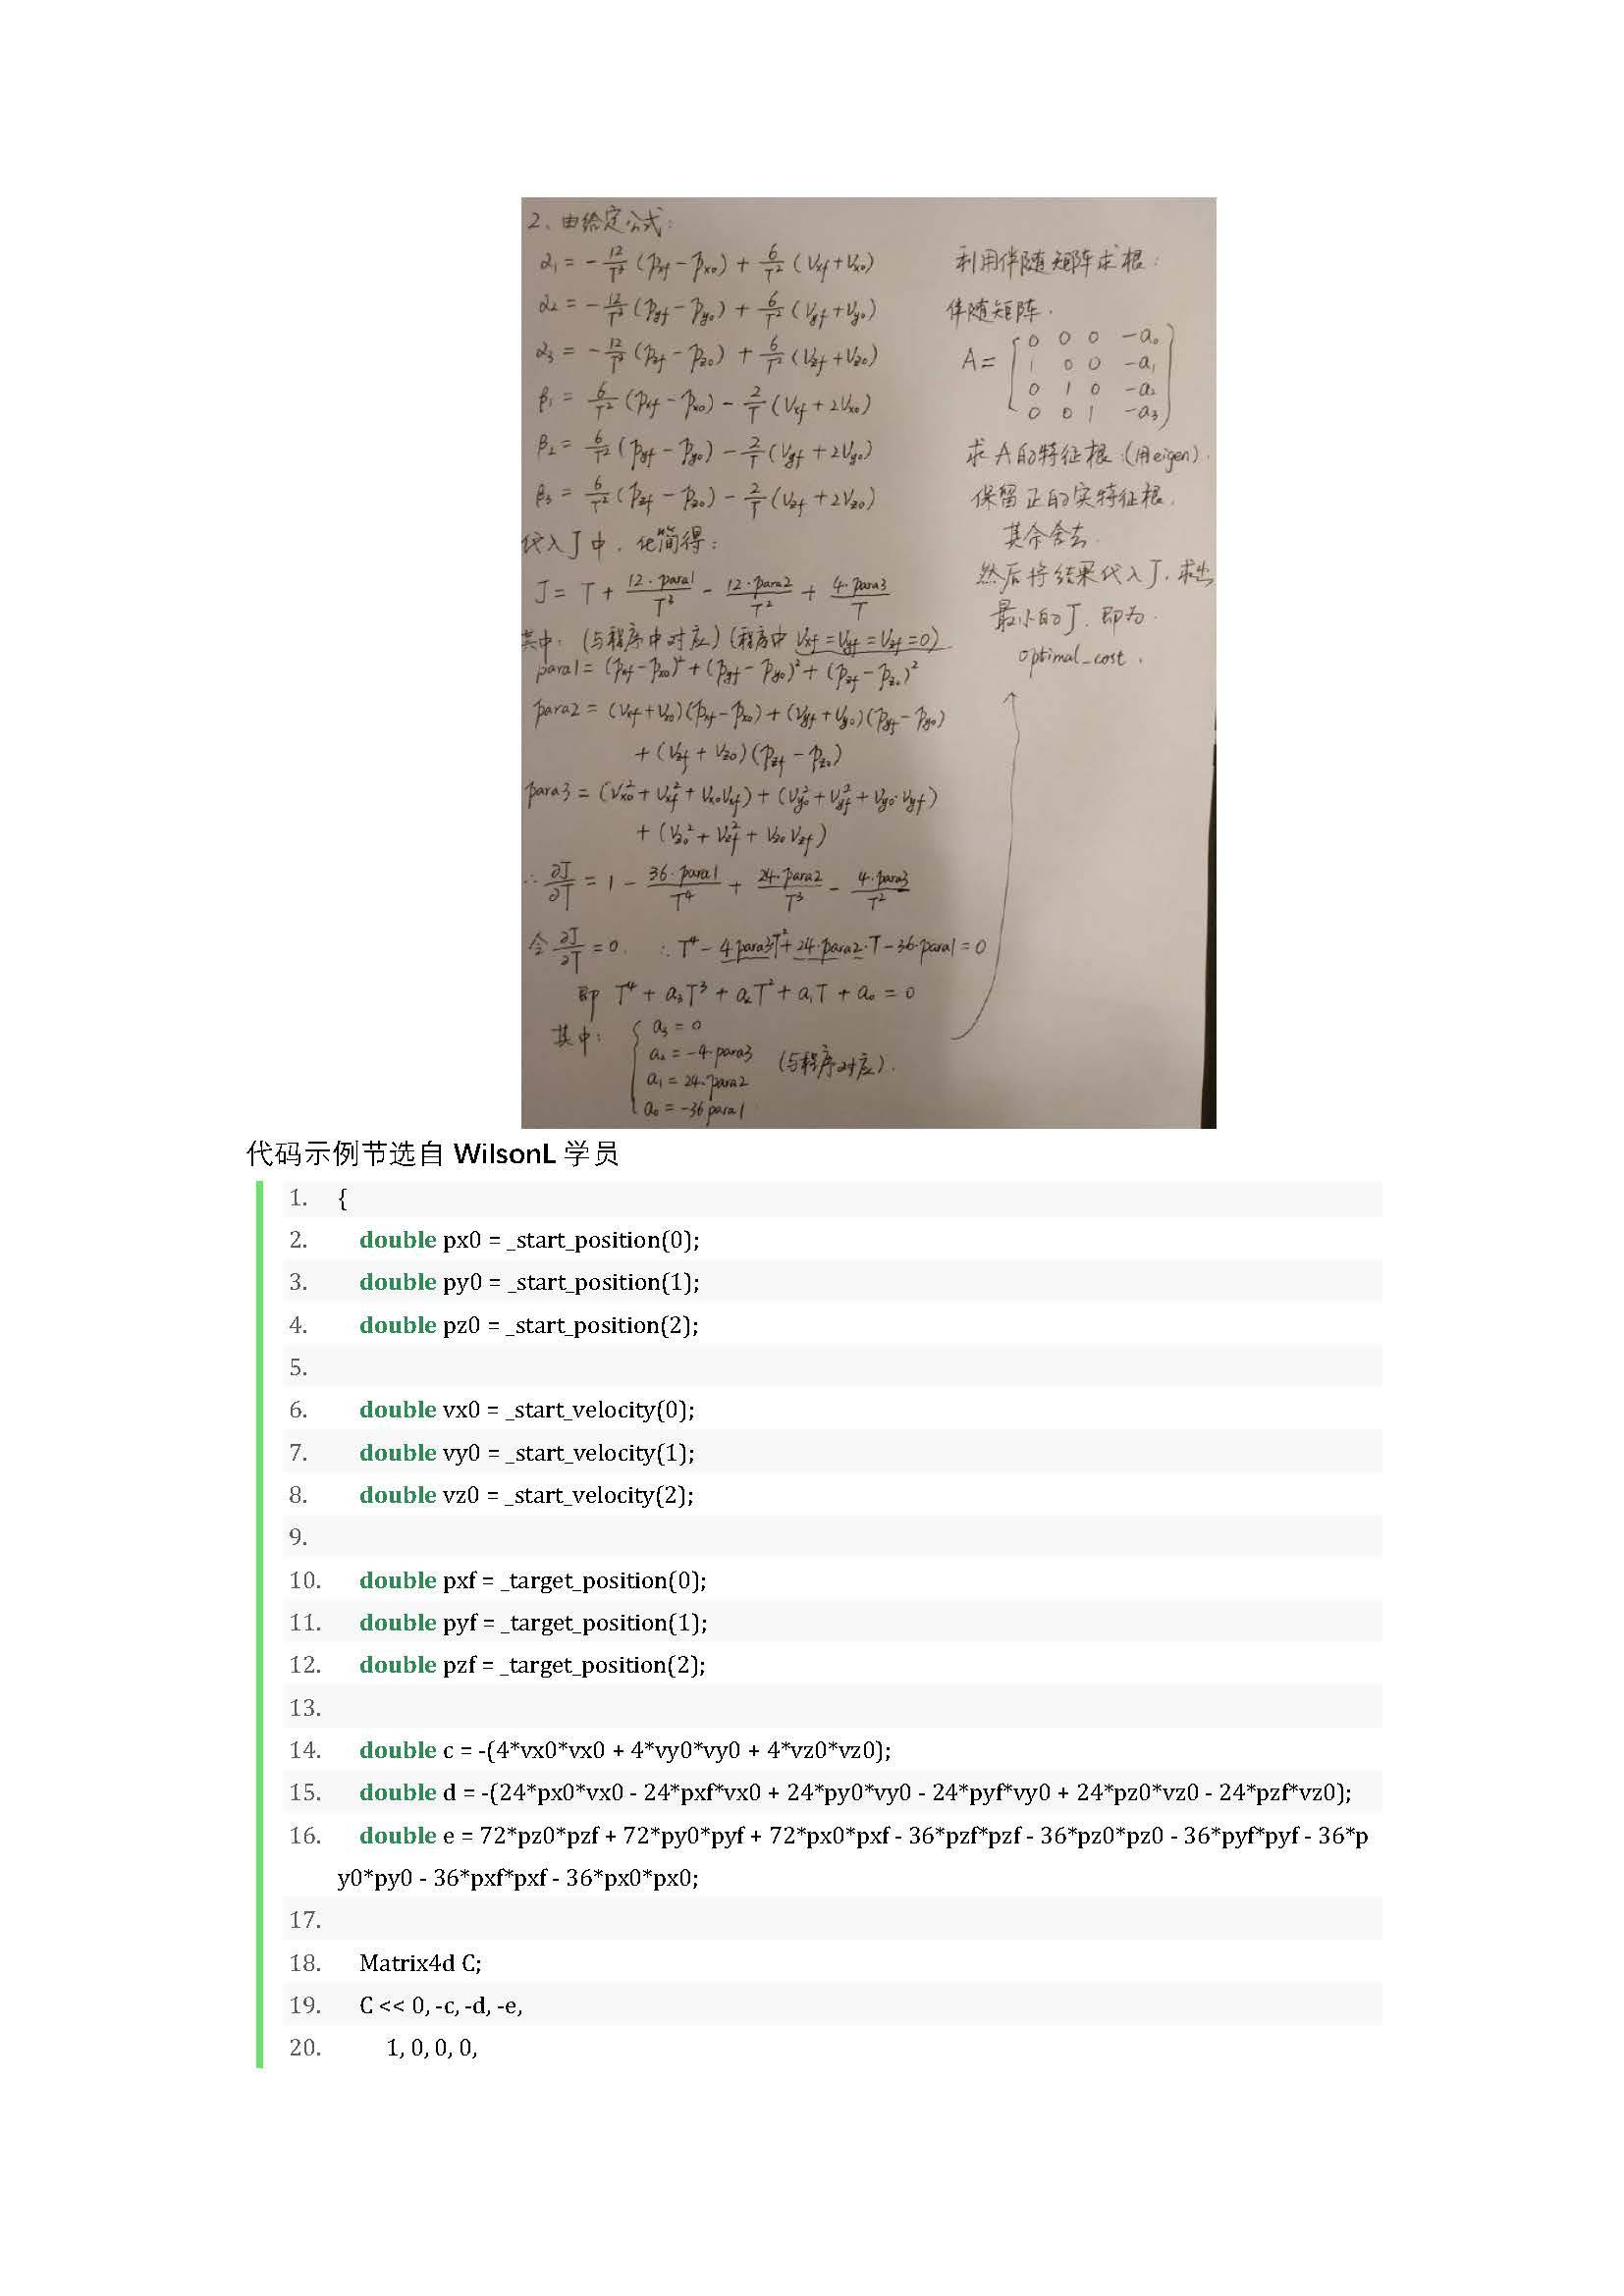 2、由给定公式：
α₁ = -12/T³ (pxf - px0) + 6/T² (Vxf + Vx0)
α₂ = -12/T³ (pyf - py0) + 6/T² (Vyf + Vy0)
α₃ = -12/T³ (pzf - pz0) + 6/T² (Vzf + Vz0)
β₁ = 6/T² (pxf - px0) - 2/T (Vxf + 2Vx0)
β₂ = 6/T² (pyf - py0) - 2/T (Vyf + 2Vy0)
β₃ = 6/T² (pzf - pz0) - 2/T (Vzf + 2Vz0)
代入J中，化简得：
J = T + 12·para1/T³ - 12·para2/T² + 4·para3/T
其中：(与程序中对应) (程序中 Vxf = Vyf = Vzf = 0)
para1 = (pxf - px0)² + (pyf - py0)² + (pzf - pz0)²
para2 = (Vxf + Vx0)(pxf - px0) + (Vyf + Vy0)(pyf - py0)
+ (Vzf + Vz0)(pzf - pz0)
para3 = (Vx0² + Vxf² + Vx0Vxf) + (Vy0² + Vyf² + Vy0·Vyf)
+ (Vz0² + Vzf² + Vz0Vzf)
∴ ∂J/∂T = 1 - 36·para1/T⁴ + 24·para2/T³ - 4·para3/T²
令 ∂J/∂T = 0. ∴ T⁴ - 4para3T² + 24·para2·T - 36·para1 = 0
即 T⁴ + a₃T³ + a₂T² + a₁T + a₀ = 0
其中：{ a₃ = 0
a₂ = -4·para3 (与程序对应).
a₁ = 24·para2
a₀ = -36para1
利用伴随矩阵求根：
伴随矩阵.
A = [ 0 0 0 -a₀
1 0 0 -a₁
0 1 0 -a₂
0 0 1 -a₃ ]
求A的特征根 (用eigen).
保留正的实特征根.
其余舍去.
然后将结果代入J, 求出
最小的J, 即为.
optimal_cost.
代码示例节选自 WilsonL 学员
1. {
2. double px0 = _start_position(0);
3. double py0 = _start_position(1);
4. double pz0 = _start_position(2);
5.
6. double vx0 = _start_velocity(0);
7. double vy0 = _start_velocity(1);
8. double vz0 = _start_velocity(2);
9.
10. double pxf = _target_position(0);
11. double pyf = _target_position(1);
12. double pzf = _target_position(2);
13.
14. double c = -(4*vx0*vx0 + 4*vy0*vy0 + 4*vz0*vz0);
15. double d = -(24*px0*vx0 - 24*pxf*vx0 + 24*py0*vy0 - 24*pyf*vy0 + 24*pz0*vz0 - 24*pzf*vz0);
16. double e = 72*pz0*pzf + 72*py0*pyf + 72*px0*pxf - 36*pzf*pzf - 36*pz0*pz0 - 36*pyf*pyf - 36*p
y0*py0 - 36*pxf*pxf - 36*px0*px0;
17.
18. Matrix4d C;
19. C << 0, -c, -d, -e,
20. 1, 0, 0, 0,